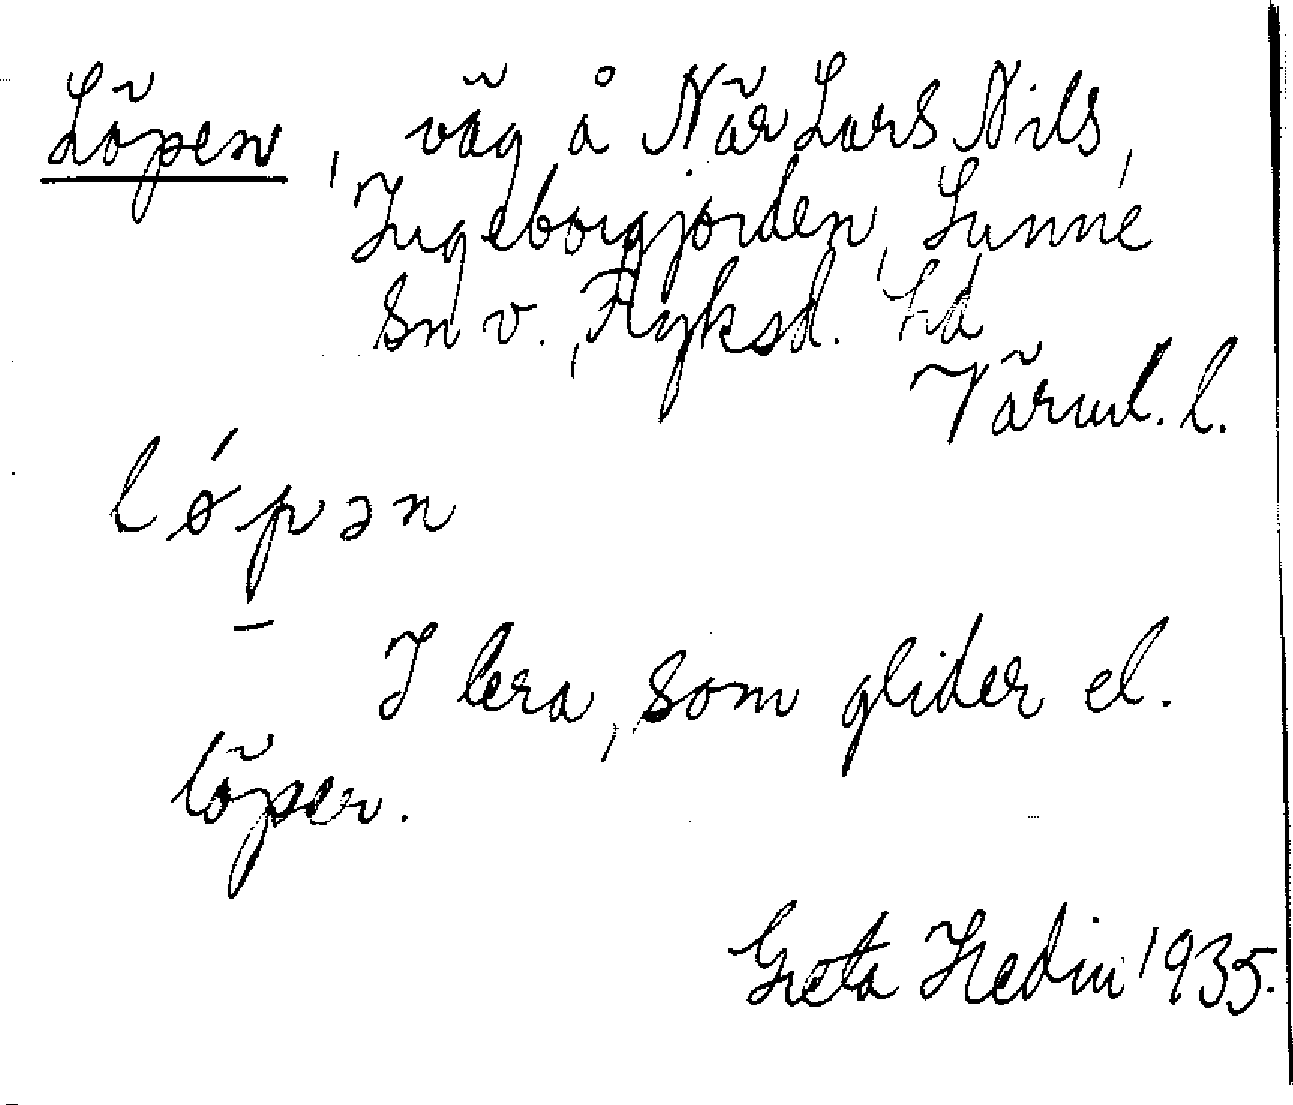 Löpen, väg å När Lars Nils,
Ingeborgjorden, Sunne
Sn v., Fryksd. hd
Värml. l.
lǿpən
I lera, som glider el.
löper.
Greta Hedin 1935.